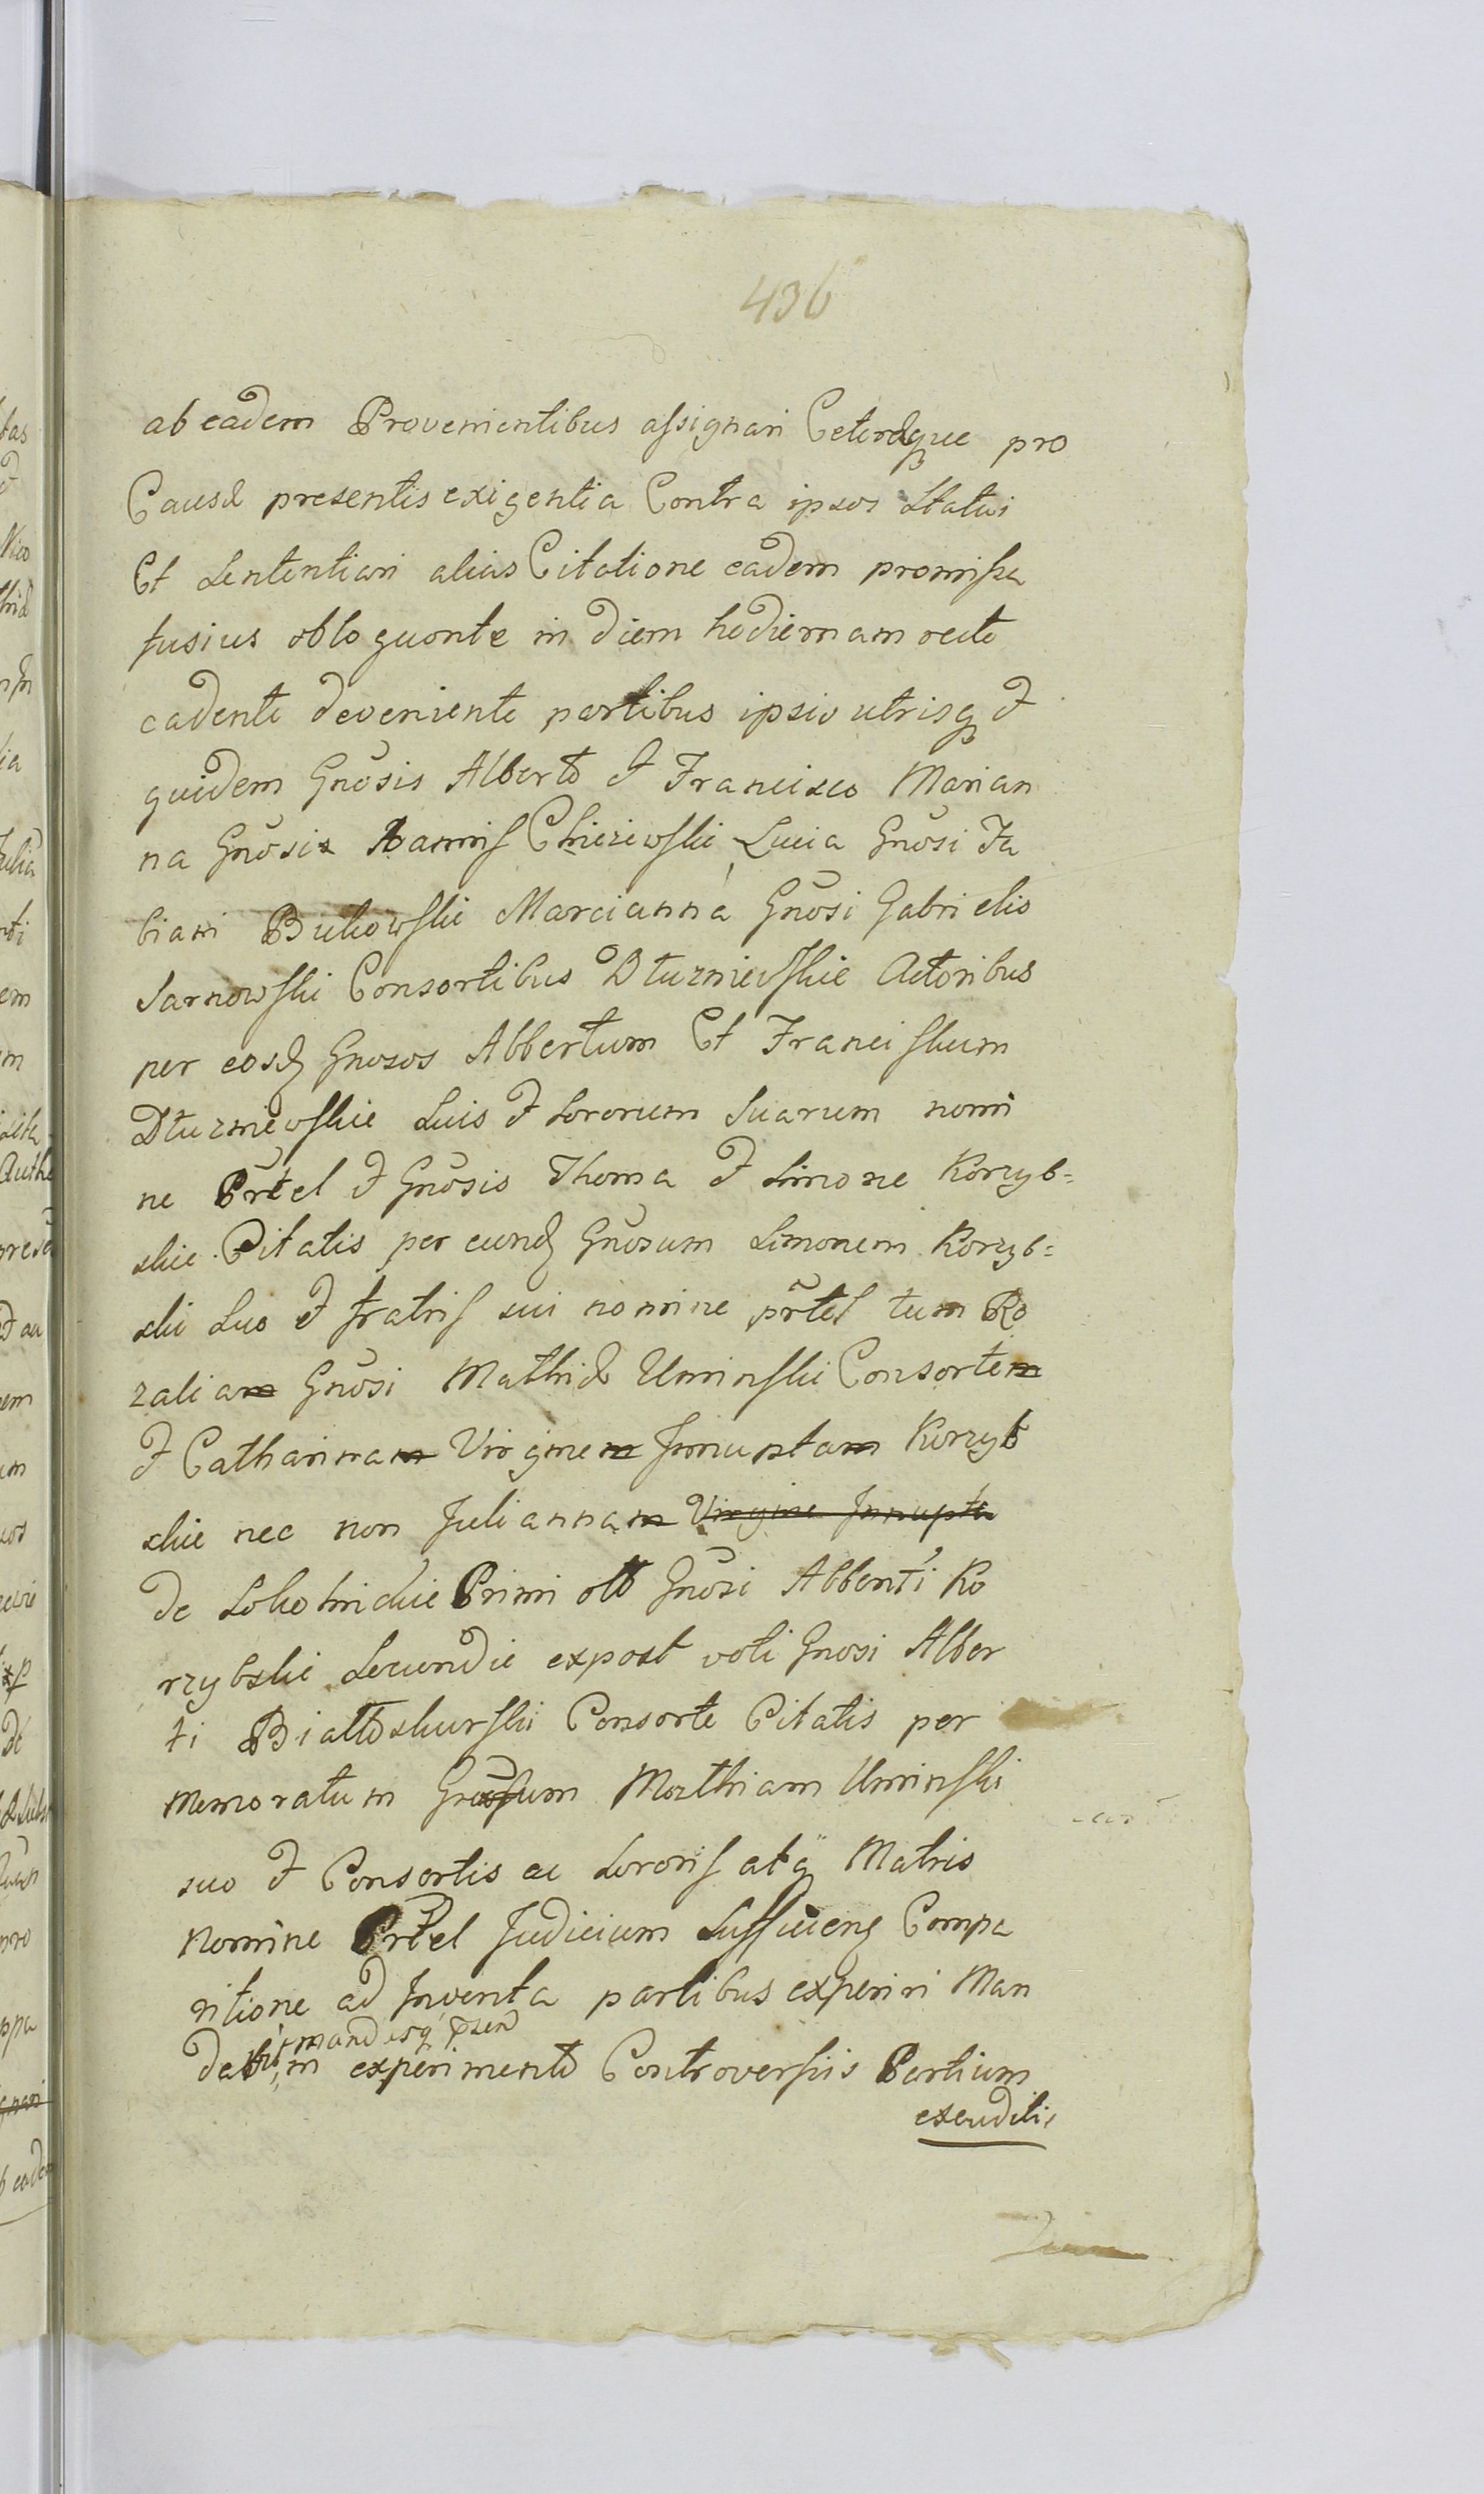 436
ab eadem Provenientibus assignari Ceteraque pro
Causæ presentis exigentia Contra ipsos Statui
Et Sententiari alias Citatione eadem promissa
fusius obloquente in diem hodiernam recte
cadente deveniente partibus ipsis utrisq et
quidem Gnosis Alberto et Francisco Marian
na Gnosi Joannis Chiczewski Lucia Gnosi Fa
biani Bukowski Marcianna Gnosi Gabrielis
Sarnowski Consortibus Dłuzniewskie Actoribus
per eosd Gnosos Albertum Et Franciskum
Dłuzniewskie Suis et Sororum Suarum nomi
ne Prtel et Gnosis Thoma et Simone Korzyb=
skie Citatis per eund Gnosum Simonem Korzyb=
ski Suo et fratris sui nomine prtes tum Ro
zaliam Gnosi Mathiæ Uminski Consortem
et Catharinam Virginem Innuptam Korzyb
skie nec non Juliannam Virgine Innupta
de primi Gnosi Alberti Ko
rzybski Secundie expost voti Gnosi Alber
ti Białoskurski Consorte Citatis per
Memoratum Gnosum Mathiam Uminski
suo et Consortis ac Sororis atq Matris
Nomine Prtel Judicium Compa
ritione ad Inventa partibus experiri Man
mand
experimento Controversiis Partium
exauditis